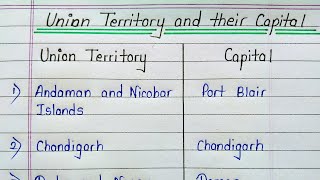 Union Territory and their Capital
Union Territory Capital
1) Andaman and Nicobar Port Blair
Islands
2) Chandigarh Chandigarh